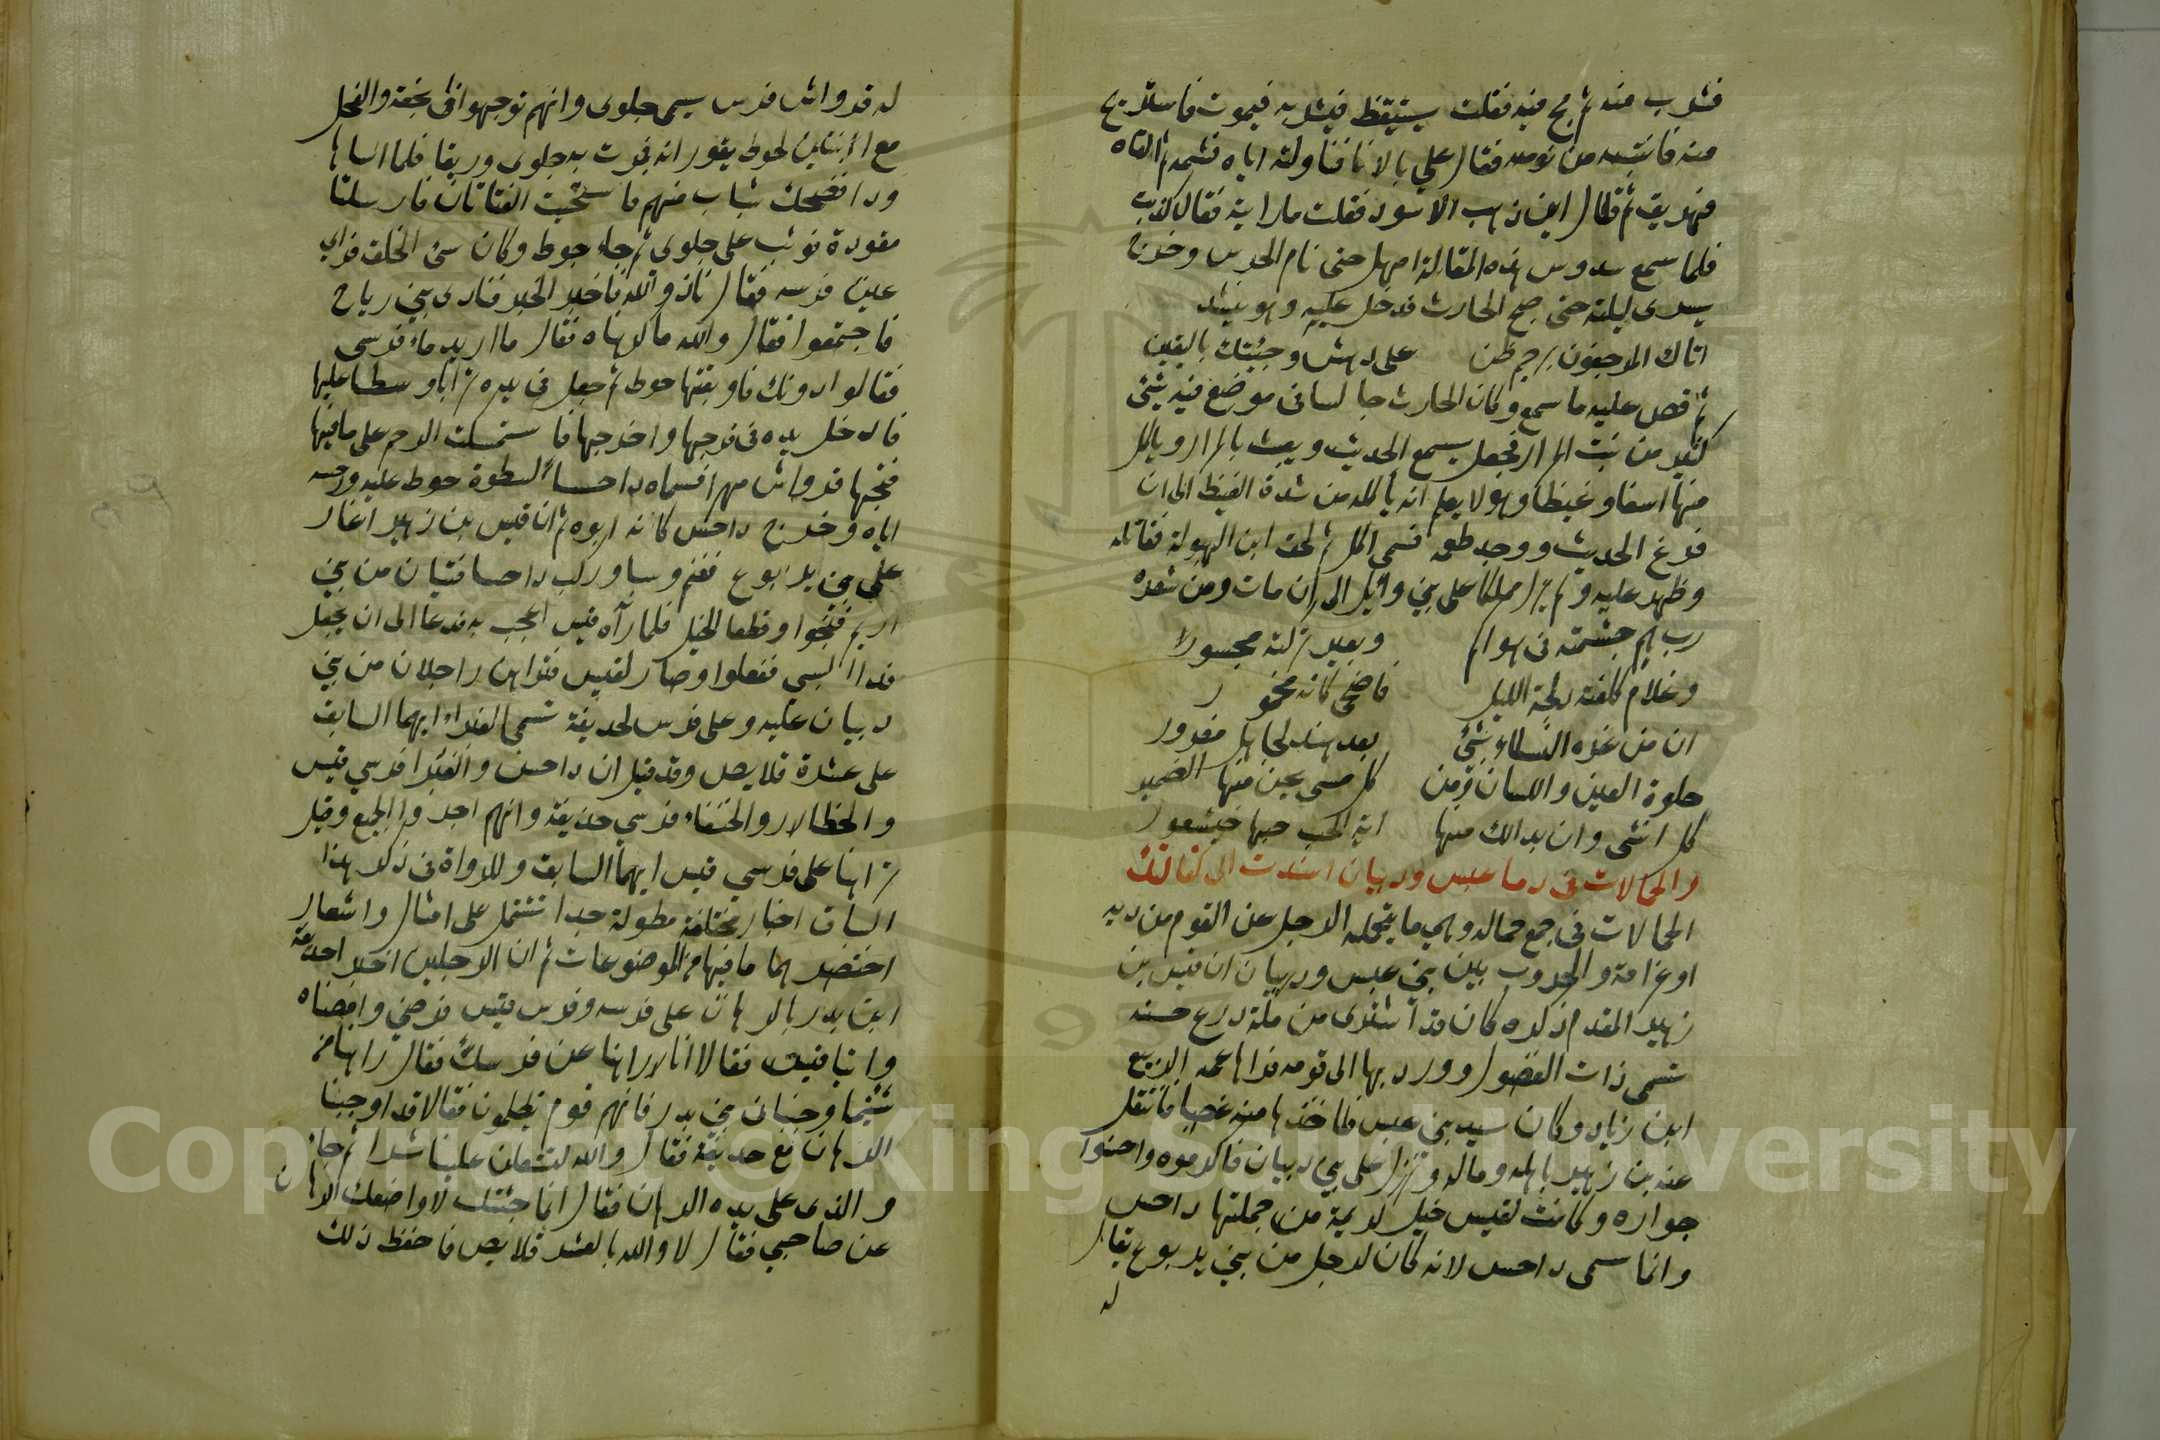 فشرب منه ثم مج فيه فقلت يستيقظ فيشربه فيموت فاستريح
منه فانتبه من نومه فقال علي بالانا فناولته اياه فشمه ثم القاه
فهريق ثم قال اين ذهب الاسود فقلت ما رايته فقال كذبت
فلما سمع سدوس هذه المقالة امهل حتى نام الحرس وخرج
يسرى ليلته حتى صبح الحارث فدخل عليه وهو ينشد
اتاك المرجفون برجم ظن على دهش وجئتك باليقين
ثم قص عليه ما سمع وكان الحارث جالسا في موضع فيه شئ
كثير من نبت المرار فجعل يسمع الحديث ويعبث بالمرار وياكل
منها اسفا وغيظا وهو لا يعلم انه ياكله من شدة الغيظ الى ان
فرغ الحديث ووجد طعمه فسمى اكل ثم لحق ابن الهبولة فقاتله
وظهر عليه ولم يزل مملكا على بني وايل الى ان مات ومن شعره
رب هم جشمته في هواكم وبعير تركته محسورا
وغلام كلفته دلجة الليل فاضحى كانه مخمور
ان من غره النساء بشئ بعد هند لجاهل مغرور
حلوة العين واللسان ومن كل شى يجن منها الضمير
كل انثى وان بدا لك منها اية الحب حبها خيتعور
والحمالات في دما عبس وذبيان اسندت الى كفالتك
الحمالات في جمع حمالة وهي ما يتحمله الرجل عن القوم من دية
او غرامة والحروب بين بني عبس وذبيان ان قيس بن
زهير المقدم ذكره كان قد اشترى من مكة درع حسنه
تسمى ذات الفضول وورد بها الى قومه فراها عمه الربيع
ابن زياد وكان سيد بني عبس فاخذها منه غصبا فانتقل
عنه بن زهير باهله وماله ونزل على بني ذبيان فاكرموه واحسنوا
جواره وكانت لقيس خيل كريمة من جملتها داحس
وانما سمى داحس لانه كان لرجل من بني يربوع يقال
له
له قرواش فرس يسمى جلوى وانهم توجهوا في نجعة والفحل
مع ابنتين لحوط يقودانه فمرت به جلوى وديقا فلما استاها
ودا فضحك شباب منهم فاستحيت الفتاتان فارسلتا
مقودة فوثب على جلوى ثم جاء حوط وكان سئ الخلق فراى
عين فرسه فقال نزا والله فاخبر الخبر فنادى بني رياح
فاجتمعوا فقال والله ما اكرهناه فقال ما اريد ماء فرسى
فقالوا دونك فاوثقها حوط ثم جعل في يده ترابا وسطا عليها
فادخل يده في فرجها واخرجها فاستمسكت الرحم على ما فيها
فنتجها قرواش مهرا فسماه داحسا لسطوة حوط عليه ودحسه
اياه وخرج داحس كانه ابوه ثم ان قيس بن زهير اغار
على بني يربوع فغنم وسبا وركب داحسا فتيان من بني
ازنم فنجوا وقطعا الخيل فلما رآه قيس اعجب به فدعا الى ان يجعل
فدا السبي ففعلوا وصار لقيس فتراهن راجلان من بني
ذبيان عليه وعلى فرس لحذيفة تسمى الغبراء ايهما السابق
على عشرة قلايص وقد قيل ان داحس والغبرا فرسي قيس
والخطار والحنفاء فرسي حذيفة وانهم اجروا الجميع وقيل
تراهنا على فرسي قيس ايهما السابق وللرواة في ذكر هذا
السباق اخبار مختلفة مطولة جدا تشتمل على امثال واشعار
اختصرها ما فيها من الموضوعات ثم ان الرجلين اخبر احدهما حذيفة
ابن بدر بالرهان على فرسه وفرس قيس فرضي وامضاه
واتيا قيس فقالا انا راهنا عن فرسك فقال راهنا من
شئتما وجنباني بني بدر فانهم قوم يظلمون فقالا قد اوجبنا
الرهان مع حذيفة فقال والله لتشعلن علينا شرا ثم جاء
والذى على يده الرهان فقال انما جئتك لاواضعك الرهان
عن صاحبي فقال لا والله بالعشر قلايص فاحفظ ذلك
Copyright © King Saud University